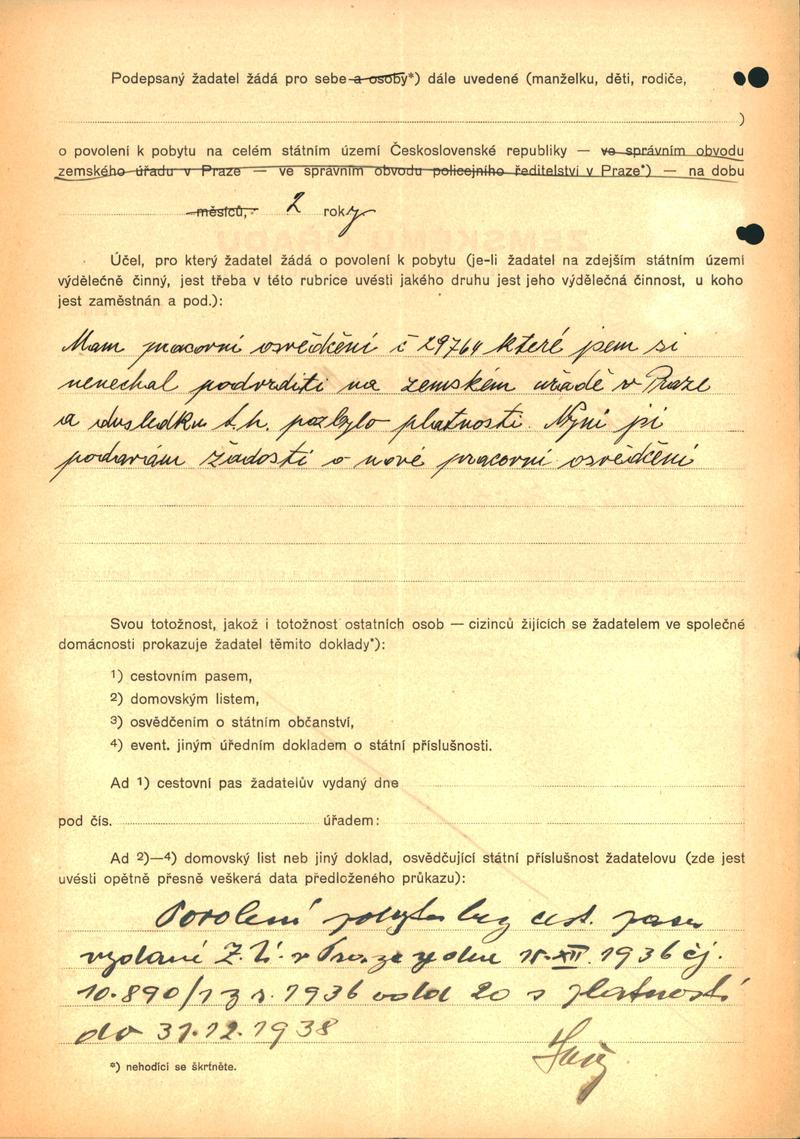 Podepsaný žadatel žádá pro sebe a osoby*) dále uvedené (manželku, děti, rodiče,
)
o povolení k pobytu na celém státním území Československé republiky — ve správním obvodu
zemského úřadu v Praze — ve správním obvodu policejního ředitelství v Praze*) — na dobu
měsíců, 2 roky
Účel, pro který žadatel žádá o povolení k pobytu (je-li žadatel na zdejším státním území
výdělečně činný, jest třeba v této rubrice uvésti jakého druhu jest jeho výdělečná činnost, u koho
jest zaměstnán a pod.):
Mam pracovní osvědčení č 29764 které jsem si
nenechal podvrditi na zemském úřadě v Praze
a důsledku t.h. pozbylo platnosti. Nyní ji
podavám žádosti o nové pracovní osvědčení
Svou totožnost, jakož i totožnost ostatních osob — cizinců žijících se žadatelem ve společné
domácnosti prokazuje žadatel těmito doklady*):
1) cestovním pasem,
2) domovským listem,
3) osvědčením o státním občanství,
4) event. jiným úředním dokladem o státní příslušnosti.
Ad 1) cestovní pas žadatelův vydaný dne
pod čís. úřadem:
Ad 2)—4) domovský list neb jiný doklad, osvědčující státní příslušnost žadatelovu (zde jest
uvésti opětně přesně veškerá data předloženého průkazu):
Povolení pobytu bez cest. pasu
vydané Z.Ú. v Praze ze dne 15.XII.1936 čj.
10.890/1 z r. 1936 odd 20 s platností
do 31.12.1938
*) nehodící se škrtněte.